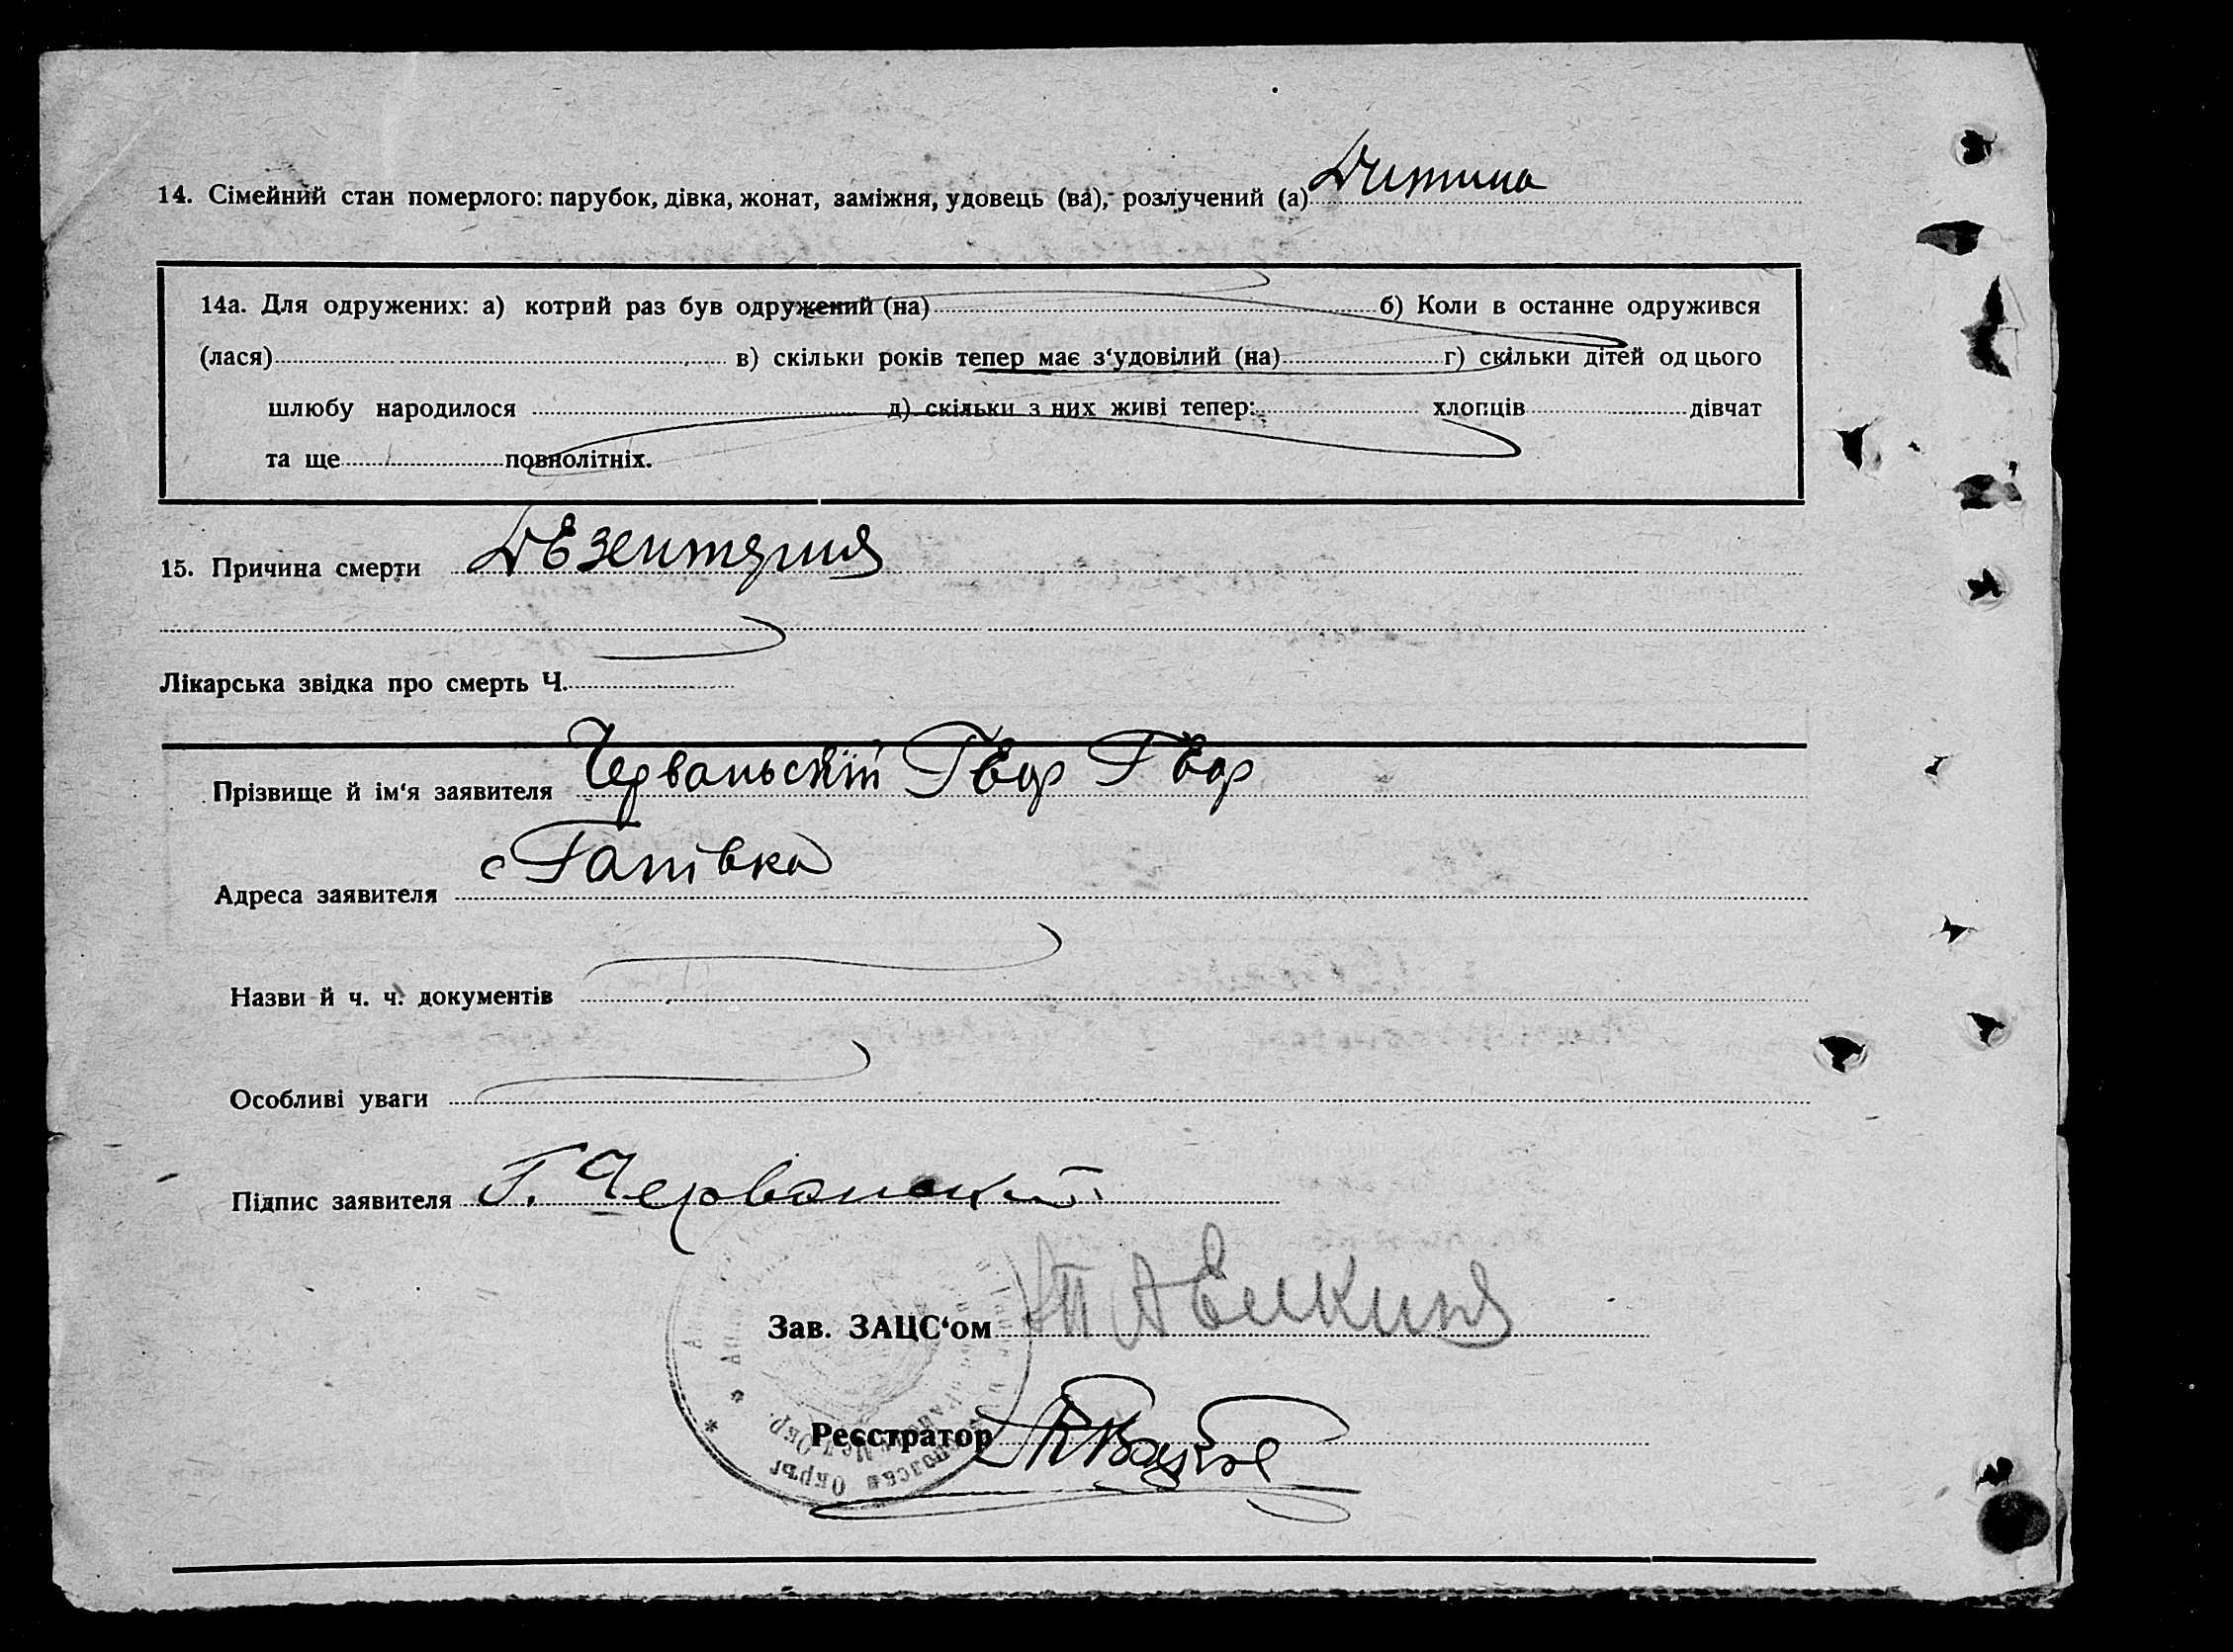 14. Сімейний стан померлого: парубок, дівка, жонат, заміжня, удовець (ва), розлучений (а) Дитина
14а. Для одружених: а) котрий раз був одружений (на) б) Коли в останнє одружився
(лася) в) скільки років тепер має з‘удовілий (на) г) скільки дітей од цього
шлюбу народилося д) скільки з них живі тепер: хлопців дівчат
та ще повнолітніх.
15. Причина смерти Дезентерия
Лікарська звідка про смерть Ч.
Прізвище й ім‘я заявителя Червaньскій Геор Геор
Адреса заявителя с Ганівка
Назви й ч. ч. документів
Особливі уваги
Підпис заявителя Г. Червански
Зав. ЗАЦС‘ом
Реєстратор